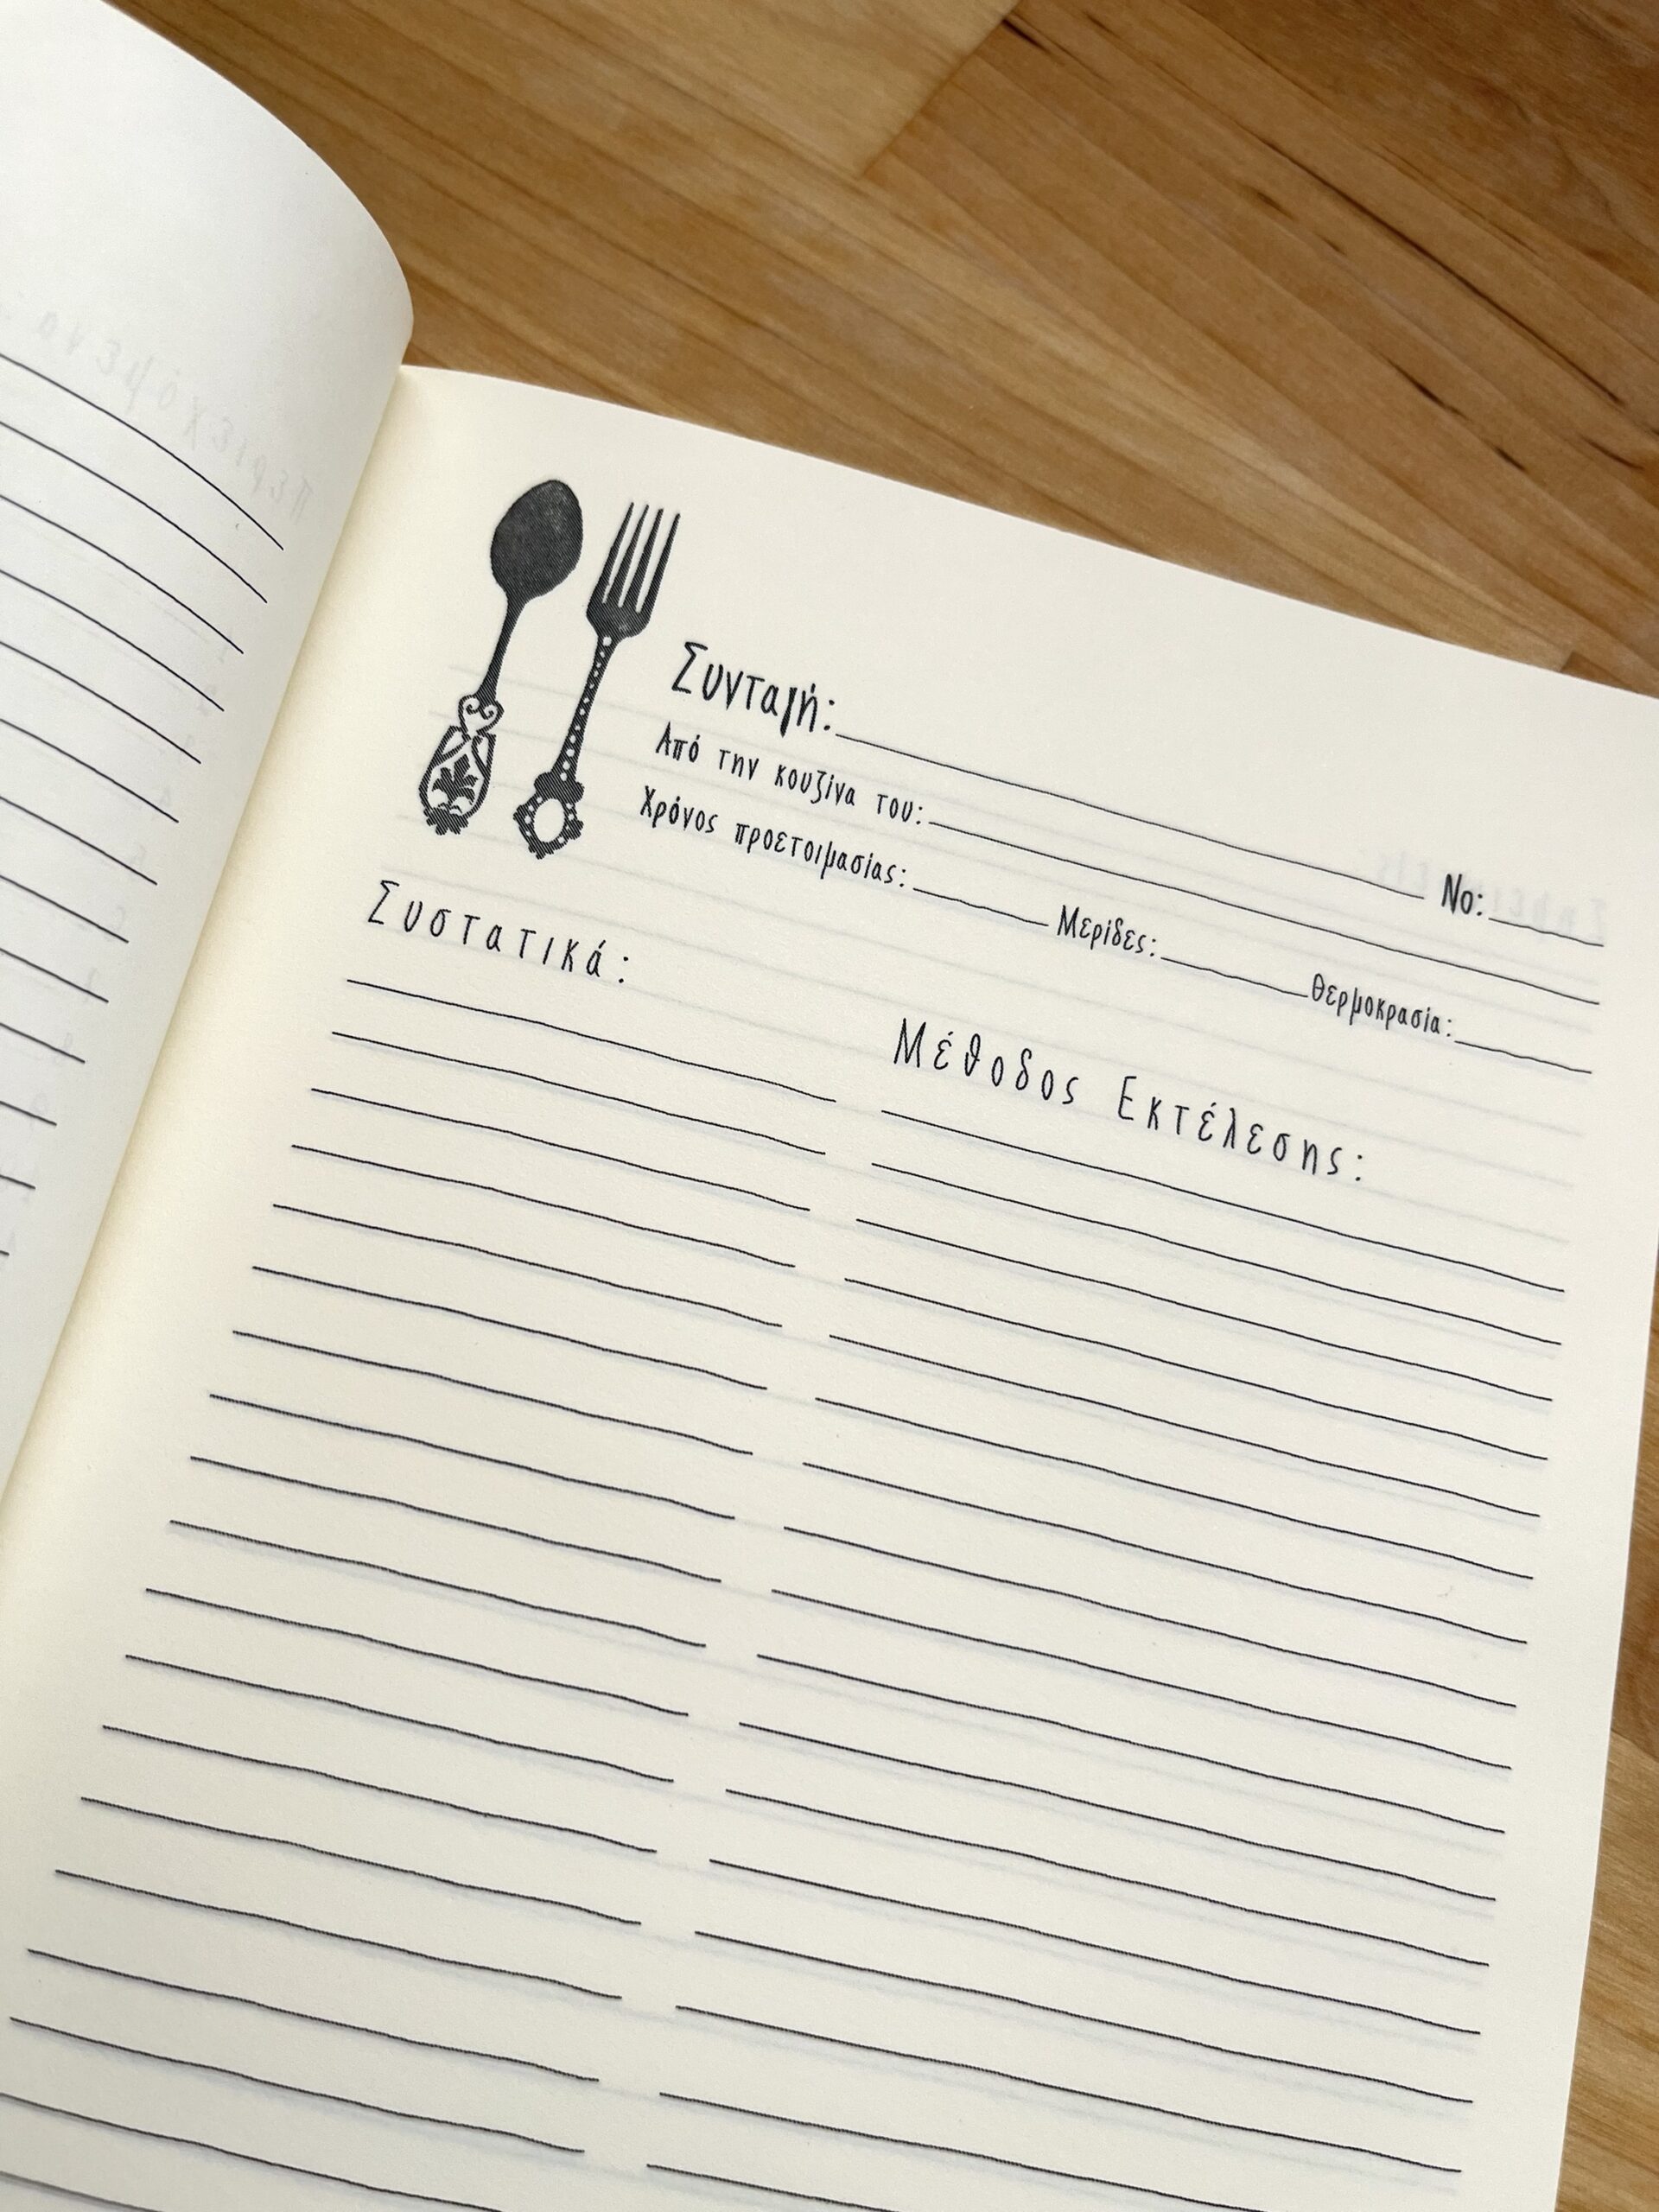 Περιεχόμενα
Συνταγή: No:
Από την κουζίνα του:
Χρόνος προετοιμασίας: Μερίδες: Θερμοκρασία:
Συστατικά:
Μέθοδος Εκτέλεσης: